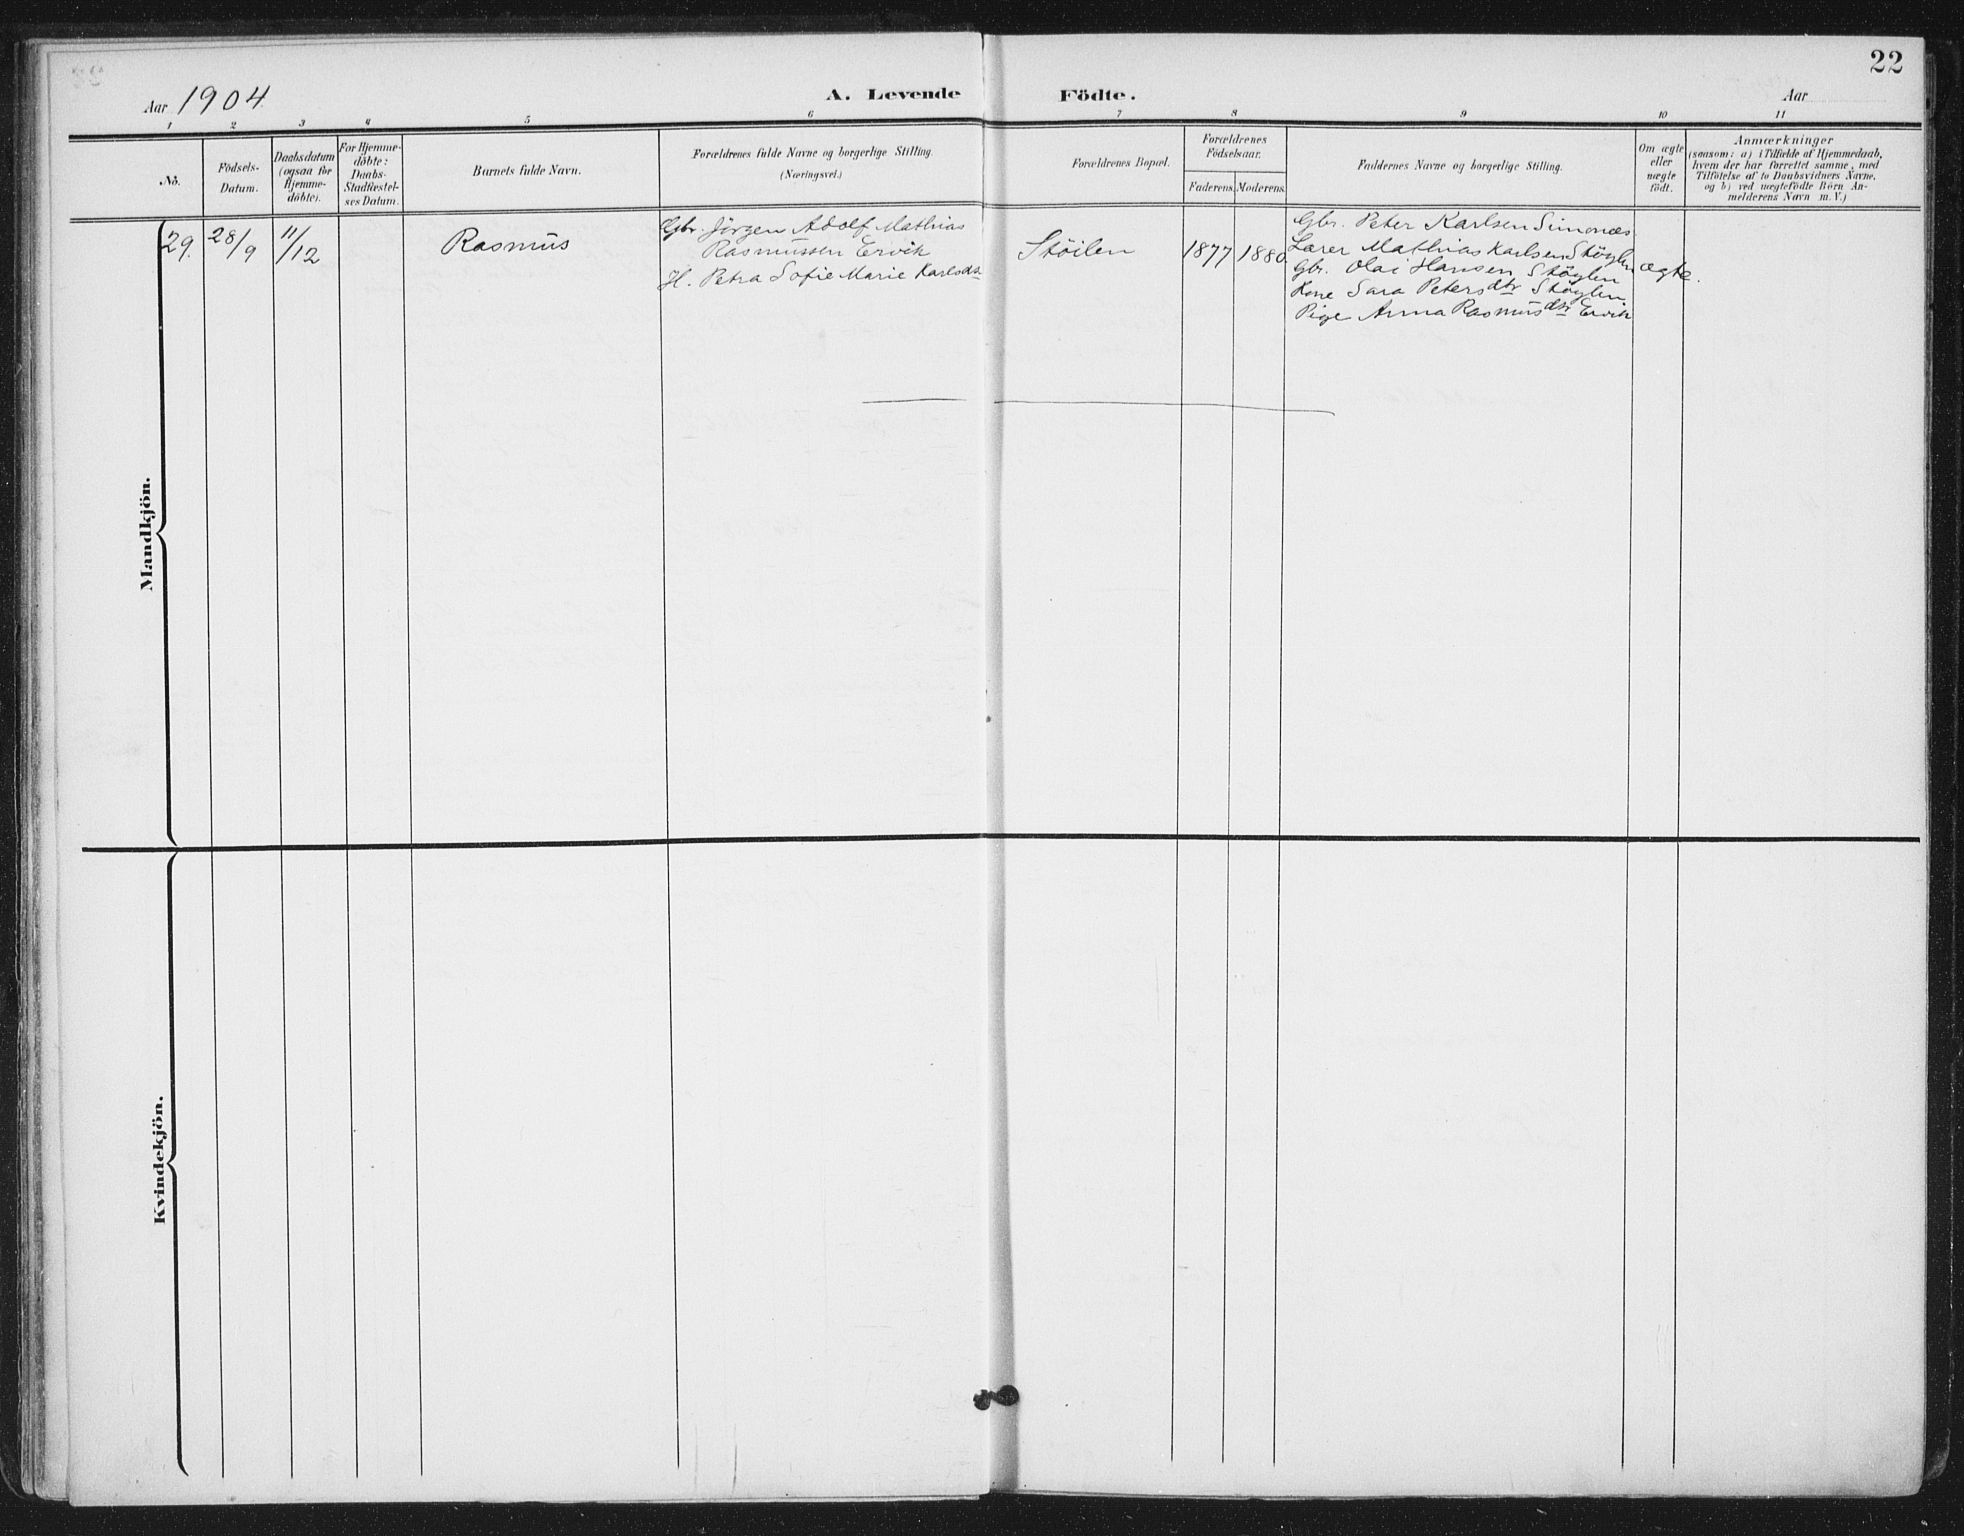 22
Aar 1904
A. Levende Födte.
Aar
1 2 3 4 5 6 7 8 9 10 11
No.
Födsels-
Datum.
Daabsdatum
(ogsaa for
Hjemme-
döbte).
For Hjemme-
döbte:
Daabs-
Stadfæstel-
ses Datum.
Barnets fulde Navn.
Forældrenes fulde Navne og borgerlige Stilling.
(Næringsvei.)
Forældrenes Bopæl.
Forældrenes
Födselsaar.
Faderens. Moderens.
Faddernes Navne og borgerlige Stilling.
Om ægte
eller
uægte
födt.
Anmærkninger
(saasom: a) i Tilfælde af Hjemmedaab,
hvem der har forrettet samme, med
Tilföielse af to Daabsvidners Navne,
og b) ved uægtefödte Börn An-
melderens Navn m. V.)
Mandkjön.
29. 28/9 11/12
Rasmus
Gbr. Jörgen Adolf Mathias
Rasmussen Ervik
H. Petra Sofie Marie Karlsdtr
Støilen
1877 1880.
Gbr. Peter Karlsen Simonæs
Lærer Mathias Karlsen Støylen
Gbr. Olai Hansen Støylen
Kone Sara Petersdtr Støylen.
Pige Anna Rasmusdtr Ervik
ægte.
Kvindekjön.